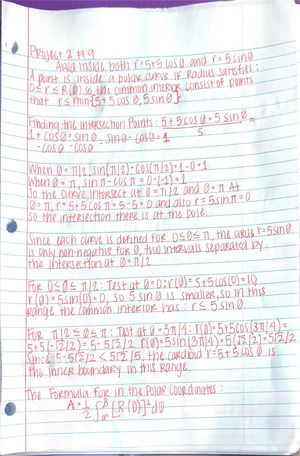 Project 2 #9
Area inside both r=5+5 cos θ and r=5 sin θ
A point is inside a polar curve if Radius satisfies:
0≤r≤R(θ), so the common interior consist of points
that r≤min{5+5 cos θ, 5 sin θ}.
Finding the intersection Points: 5+5 cos θ = 5 sin θ =
5
1+cos θ = sin θ = sin θ - cos θ = 1
-cos θ -cos θ
When θ=π/2, sin(π/2)-cos(π/2)=1-0=1
When θ=π, sin π-cos π=0-(-1)=1
So the curve intersect at θ=π/2 and θ=π At
θ=π, r=5+5 cos π=5-5=0 and also r=5 sin π=0
so the intersection there is at the pole.
Since each curve is defined for 0≤θ≤π, the circle r=5sinθ
is only non-negative for θ, two intervals separated by
the intersection at θ=π/2
For 0≤θ≤π/2: Test at θ=0: r(0)=5+5cos(0)=10
r(0)=5sin(0)=0, so 5 sin θ is smaller, so in this
range the common interior has: r≤5 sin θ.
For π/2≤θ≤π: Test at θ=3π/4: r(θ)=5+5cos(3π/4)=
5+5(-√2/2)=5-5√2/2 r(θ)=5sin(3π/4)=5(√2/2)=5√2/2
Since 5-5√2/2<5√2/5, the cardioid r=5+5cos θ is
the inner boundary in this range.
The Formula for in the Polar Coordinates:
A=1/2 ∫αβ [R(θ)]² dθ